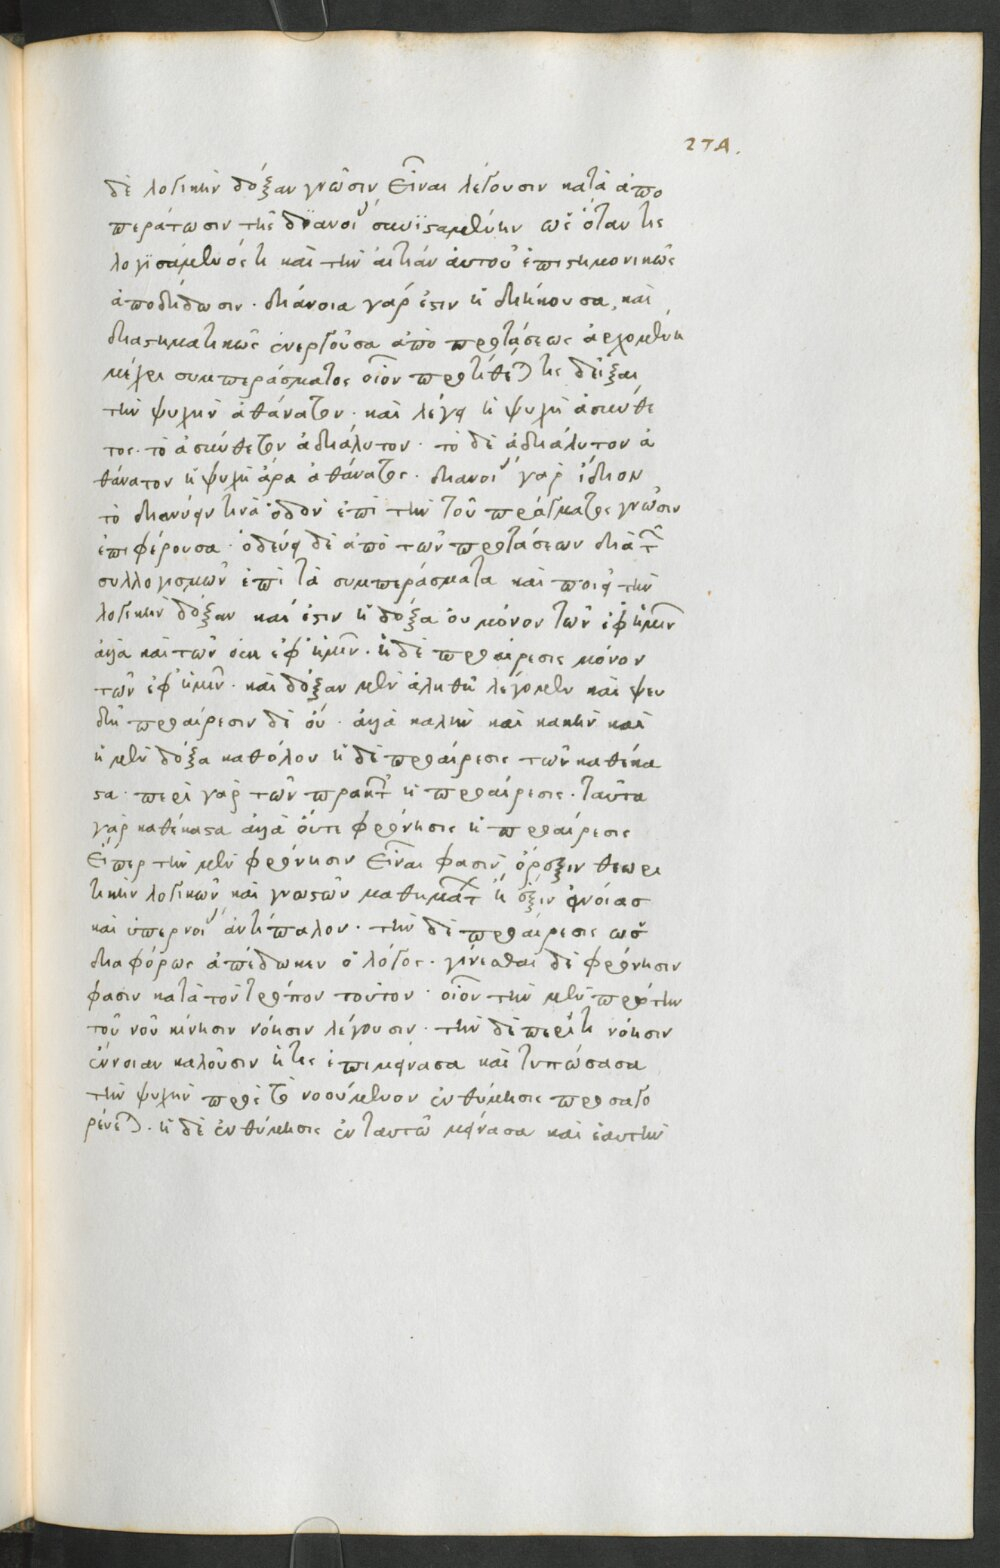 274.
δὲ λογικὴν δόξαν γνῶσιν εἶναι λέγουσιν κατὰ ἀπο
περάτωσιν τῆς διανοί συνϊσταμένην ὡς ὅταν τις
λογϊσάμενός τι καὶ τὴν αἰτίαν αὐτοῦ ἐπιστημονικῶς
ἀποδίδωσιν. διάνοια γάρ ἐστιν ἡ διήκουσα, καὶ
διαστηματικῶς ἐνεργοῦσα ἀπὸ προτάσεως ἀρχομένη
μέχρι συμπεράσματος οἷον προτίθε) τις δεῖξαι
τὴν ψυχὴν ἀθάνατον. καὶ λέγει ἡ ψυχὴ ἀσύνθε
τος. τὸ ἀσύνθετον ἀδιάλυτον. τὸ δὲ ἀδιάλυτον ἀ
θάνατον ἡ ψυχὴ ἄρα ἀθάνατος. διανοί γὰρ ἴδιον
τὸ διανύειν τινὰ ὁδὸν ἐπὶ τὴν τοῦ πράγματος γνῶσιν
ἐπιφέρουσα. ὁδεύει δὲ ἀπὸ τῶν προτάσεων διὰ τ
συλλογισμῶν ἐπὶ τὰ συμπεράσματα καὶ ποιεῖ τὴν
λογικὴν δόξαν καί ἐστιν ἡ δόξα οὐ μόνον τῶν ἐφ ἡμῖν
ἀλλὰ καὶ τῶν οὐκ ἐφ ἡμῖν. ἡ δὲ προαίρεσις μόνον
τῶν ἐφ ἡμῖν. καὶ δόξαν μὲν ἀληθῆ λέγομεν καὶ ψευ
δῆ προαίρεσιν δὲ οὔ. ἀλλὰ καλὴν καὶ κακὴν καὶ
ἡ μὲν δόξα καθόλου ἡ δὲ προαίρεσις τῶν καθέκα
στα. περὶ γὰρ τῶν πρακτ ἡ προαίρεσις. ταῦτα
γὰρ καθέκαστα ἀλλὰ οὔτε φρόνησις ἡ προαίρεσις
εἴπερ τὴν μὲν φρόνησιν εἶναι φασὶν ὄρεξιν θεωρη
τικὴν λογικῶν καὶ γνωστῶν μαθηματ ἢ ἕξιν ἀνοίας
καὶ ὑπερνοί ἀντίπαλον. τὴν δὲ προαίρεσις ὡς
διαφόρως ἀπέδωκεν ὁ λόγος. γίνεσθαι δὲ φρόνησιν
φασιν κατὰ τὸν τρόπον τοῦτον. οἷον τὴν μὲν πρώτην
τοῦ νοῦ κίνησιν νόησιν λέγουσιν. τὴν δὲ περί τι νόησιν
ἔννοιαν καλοῦσιν ἥτις ἐπιμείνασα καὶ τυπώσασα
τὴν ψυχὴν πρὸς τὸ νοούμενον ἐνθύμησις προσαγο
ρεύε). ἡ δὲ ἐνθύμησις ἐν ταυτῶ μείνασα καὶ ἑαυτὴν